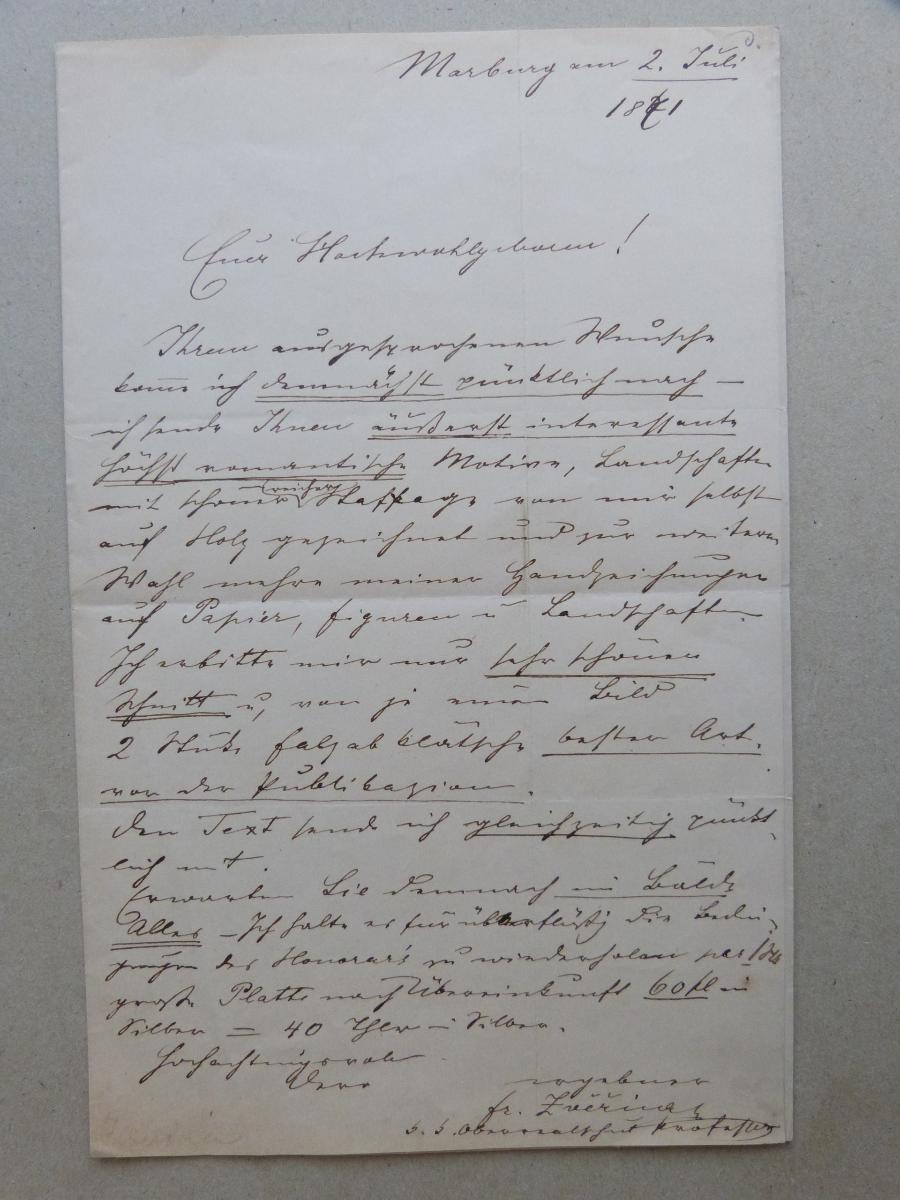 Marburg am 2. Juli
1871
Euer Hochwohlgeboren!
Ihrem ausgesprochenen Wunsche
kome ich demnächst pünktlich nach –
ich sende Ihnen äußerst interessante
höchst romantische Motive, Landschaften
mit schöner reicher Staffage von mir selbst
auf Holz gezeichnet und zur weitern
Wahl mehre meiner Handzeichnungen
auf Papier, Figuren u Landschaften
Ich erbitte mir nur sehr schönen
Schnitt u, von je einem Bild
2 Stüke bester Art.
vor der Publikazion.
Den Text sende ich gleichzeitig pünkt-
lich mit.
Erwarten Sie demnach in Bälde
Alles – Ich halte es für überflüßig die Bedin-
gungen des Honorar's zu wiederholen per
große Platte nach Übereinkunft 60 fl in
Silber = 40 Thlr in Silber.
Hochachtungsvoll
ergebner
Fr. Zvěřina
k. k. Oberrealschul Professor